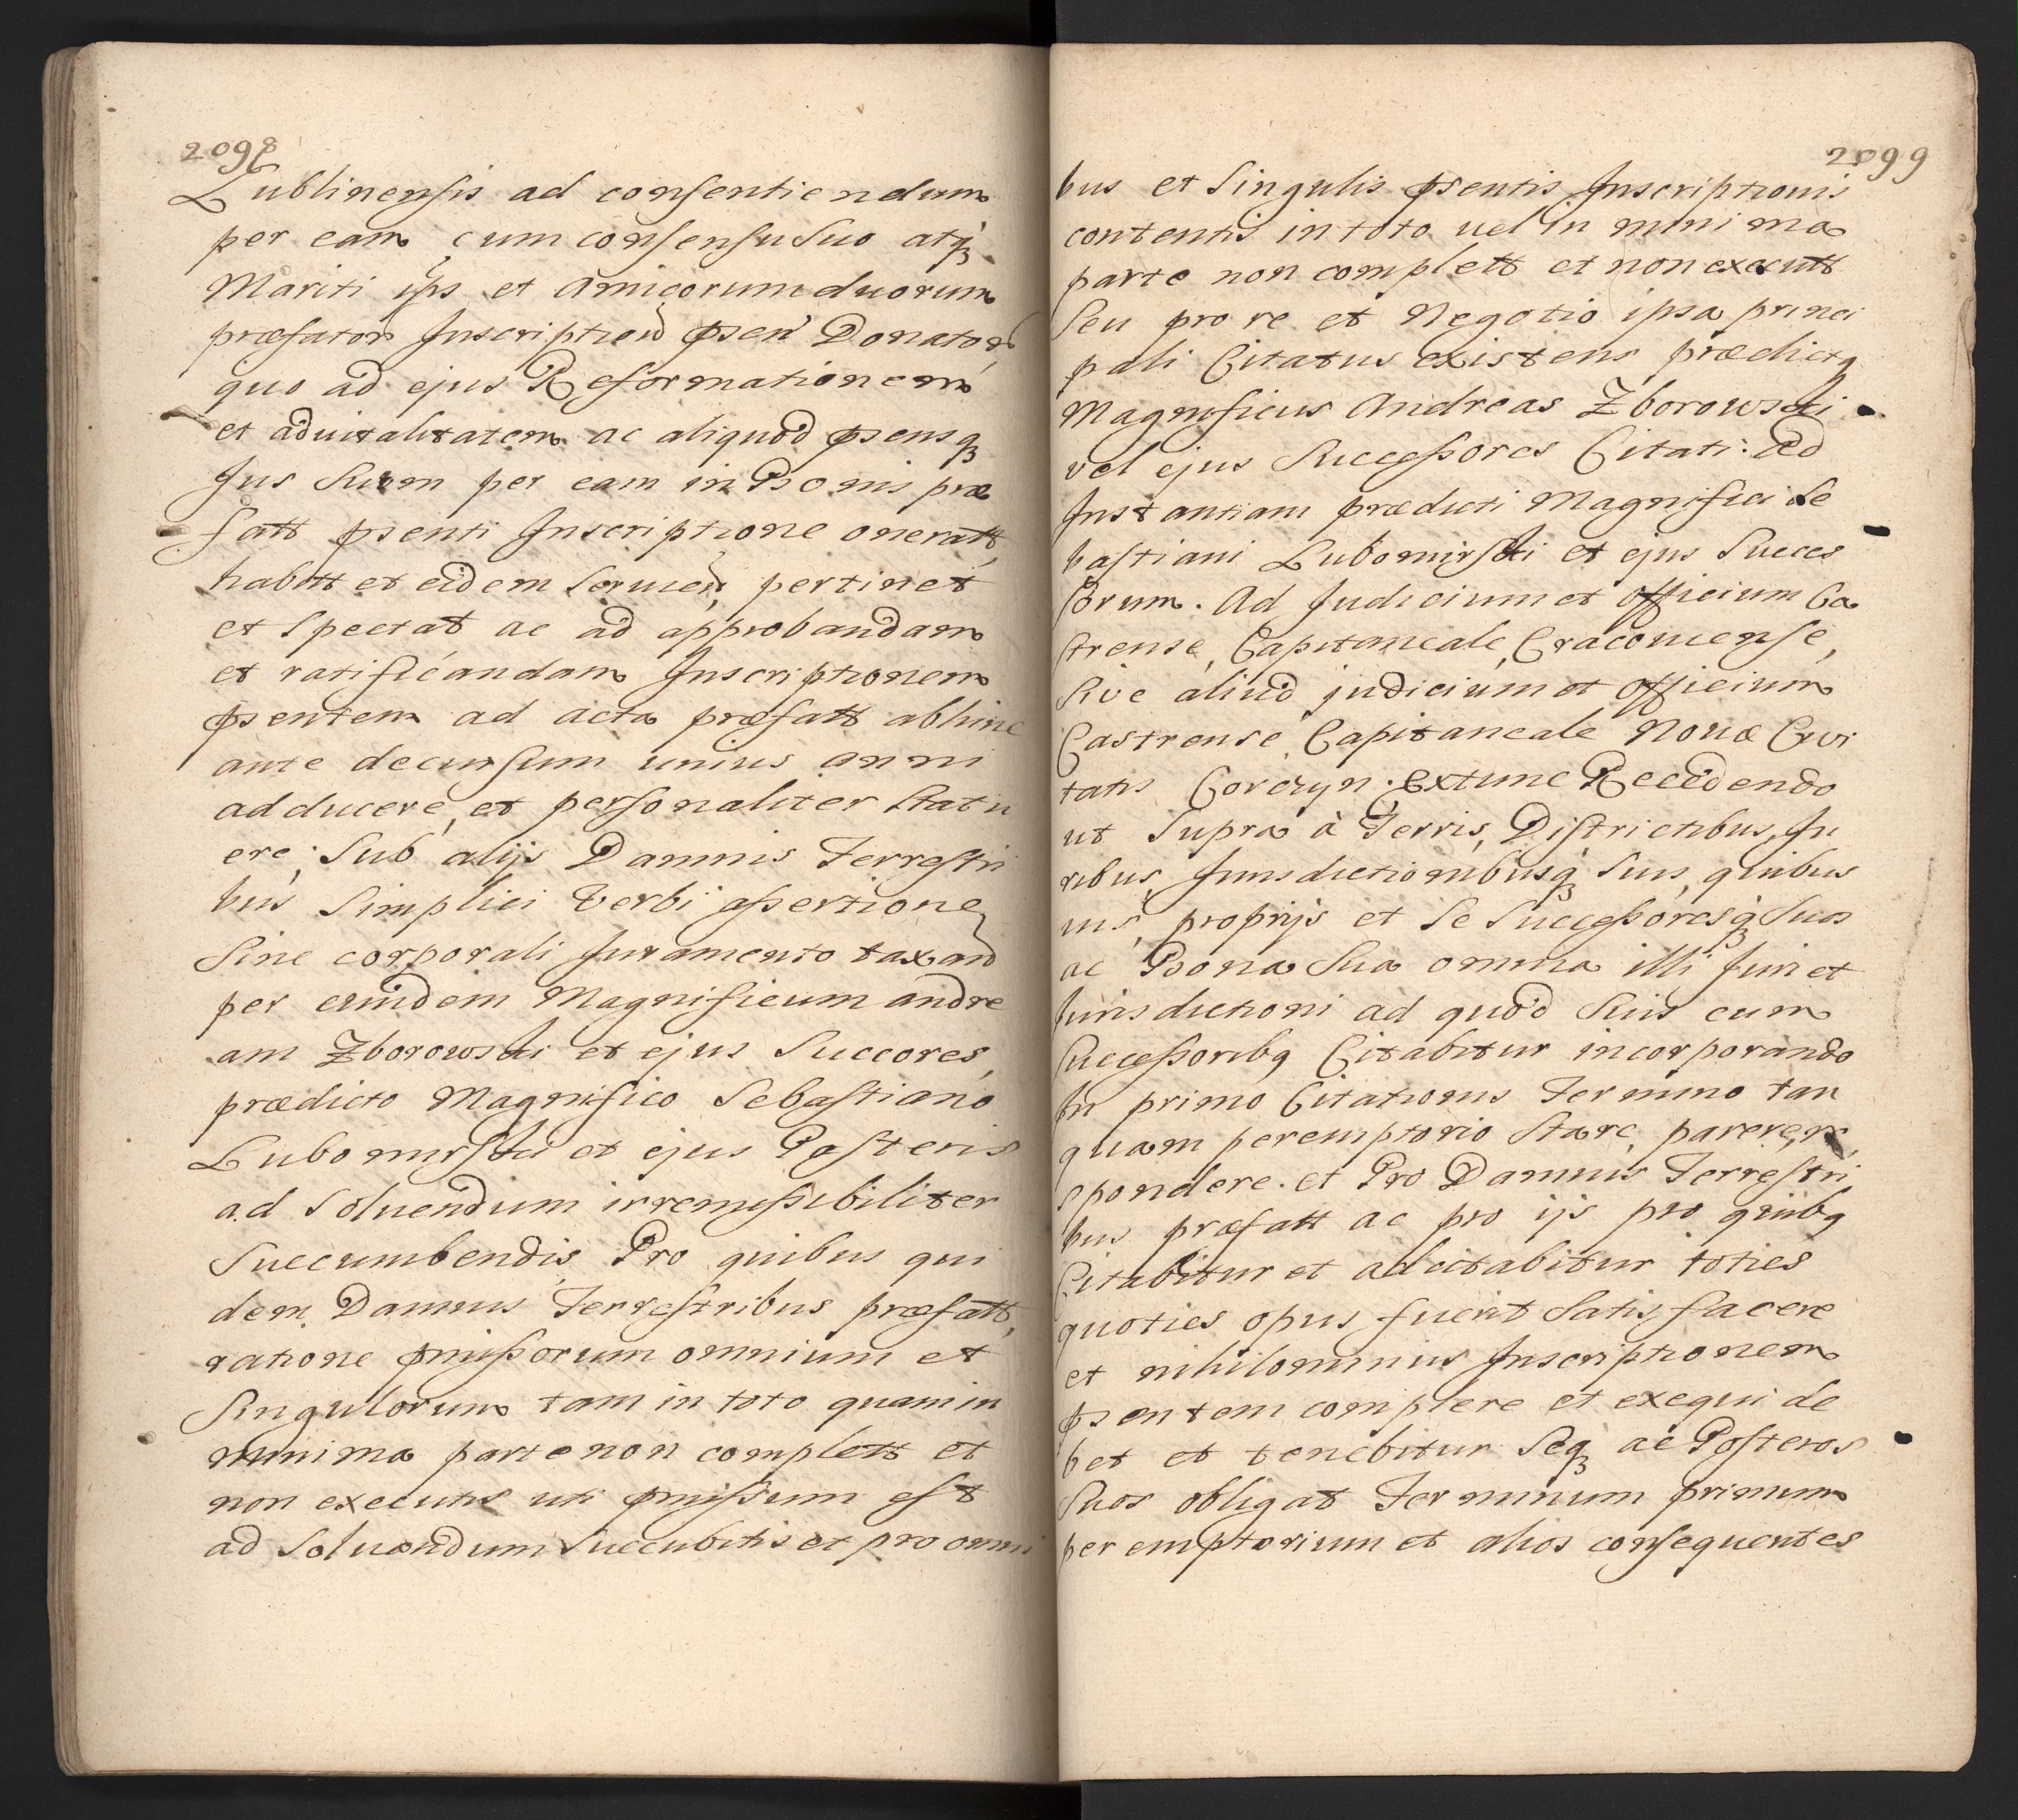 2098
Lublinensis ad consentiendum
per eam cum consensu Suo atq;
Mariti ips et Amicorum duorum
præfator Inscription psen Donator
quo ad ejus Reformationem
et advitalitatem ac aliquod psensq;
Jus Suum per eam in Bonis præ
fatt psenti Inscriptione oneratt,
habitt et eidem Servien, pertinet
et Spectat ac ad approbandam
et ratificandam Inscriptionem
psentem ad acta præfatt abhinc
ante decursum unius anni
adducere, et personaliter Statu
ere, Sub alijs Damnis Terrestri
bus Simplici Verbi assertione
Sine corporali Juramento taxand
per eundem Magnificum Andre
am Zborowski et ejus Succores,
prædicto Magnifico Sebastiano
Lubomirski et ejus Posteris
ad Solvendum irremissibiliter
Succumbendis Pro quibus qui
dem Damnis Terrestribus præfatt,
ratione pmissorum omnium et
Singulorum tam in toto quam in
minima parte non complett et
non executis uti pmissum est
ad Solvendum Succubitis et pro omni
2099
bus et Singulis psentis Inscriptionis
contentis in toto vel in minima
parte non complett et non executt
Seu pro re et Negotio ipsa princi
pali Citatus existens prædictq
Magnificus Andreas Zborowski
vel ejus Successores Citati: Ad
Instantiam prædicti Magnifici Se
bastiani Lubomirski et ejus Succes
sorum. Ad Judicium et Officium Ca
strense, Capitaneale, Cracoviense,
Sive aliud judicium et Officium
Castrense Capitaneale Novæ Civi
tatis Corczyn. Extunc Recedendo
ut Supra à Terris, Districtibus, Ju
ribus, Jurisdictionibusq; Suis, quibus
vis, proprijs et Se Successoresq; Suos
ac Bona Sua omnia illi Juri et
Jurisdictioni ad quod Suis cum
Successoribq Citabitur incorporando
In primo Citationis Termino tan
quam peremptorio Stare, parere, re
spondere. et Pro Damnis Terrestri
bus præfatt ac pro ijs pro quibq
Citabitur et adcitabitur toties
quoties opus fuerit Satis facere
et nihilominus Inscriptionem
psentem complere et exequi de
bet et tenebitur Seq; ac Posteros
Suos obligat Terminum primum
peremptorium et alios consequentes